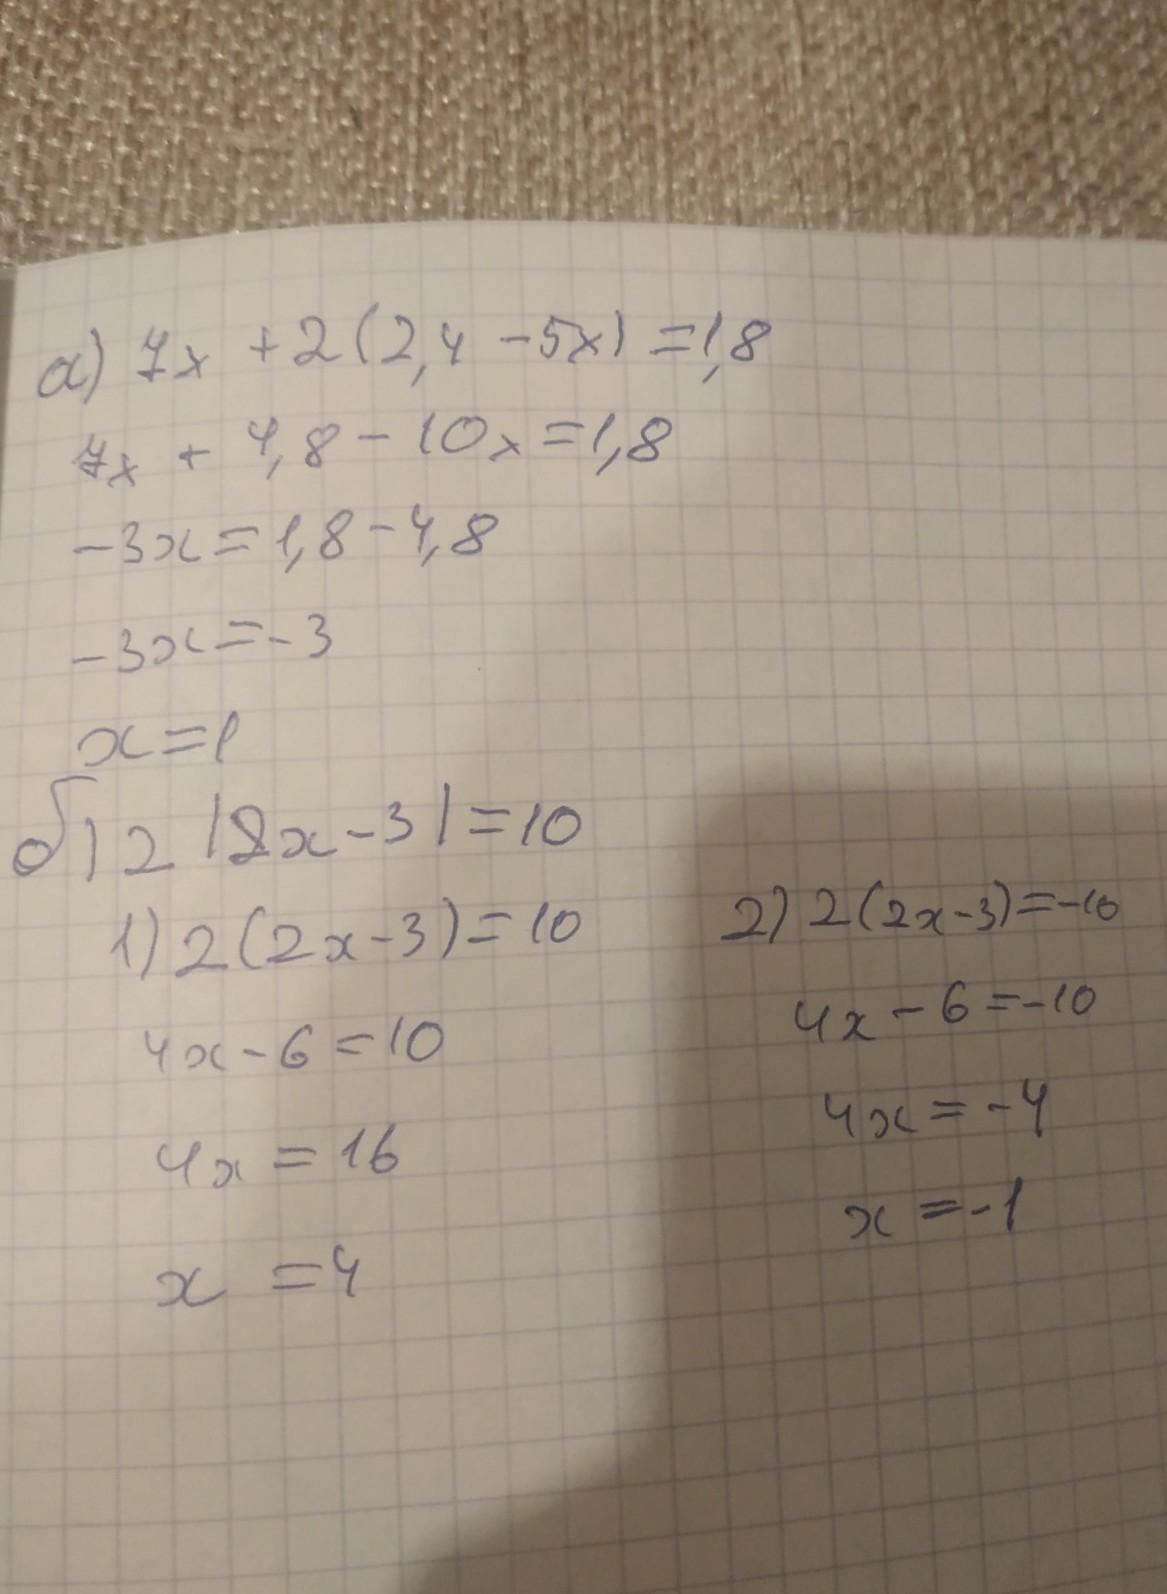 а) 7x + 2(2,4 - 5x) = 1,8
7x + 4,8 - 10x = 1,8
-3x = 1,8 - 4,8
-3x = -3
x = 1
б) 2 |2x - 3| = 10
1) 2(2x - 3) = 10
4x - 6 = 10
4x = 16
x = 4
2) 2(2x - 3) = -10
4x - 6 = -10
4x = -4
x = -1